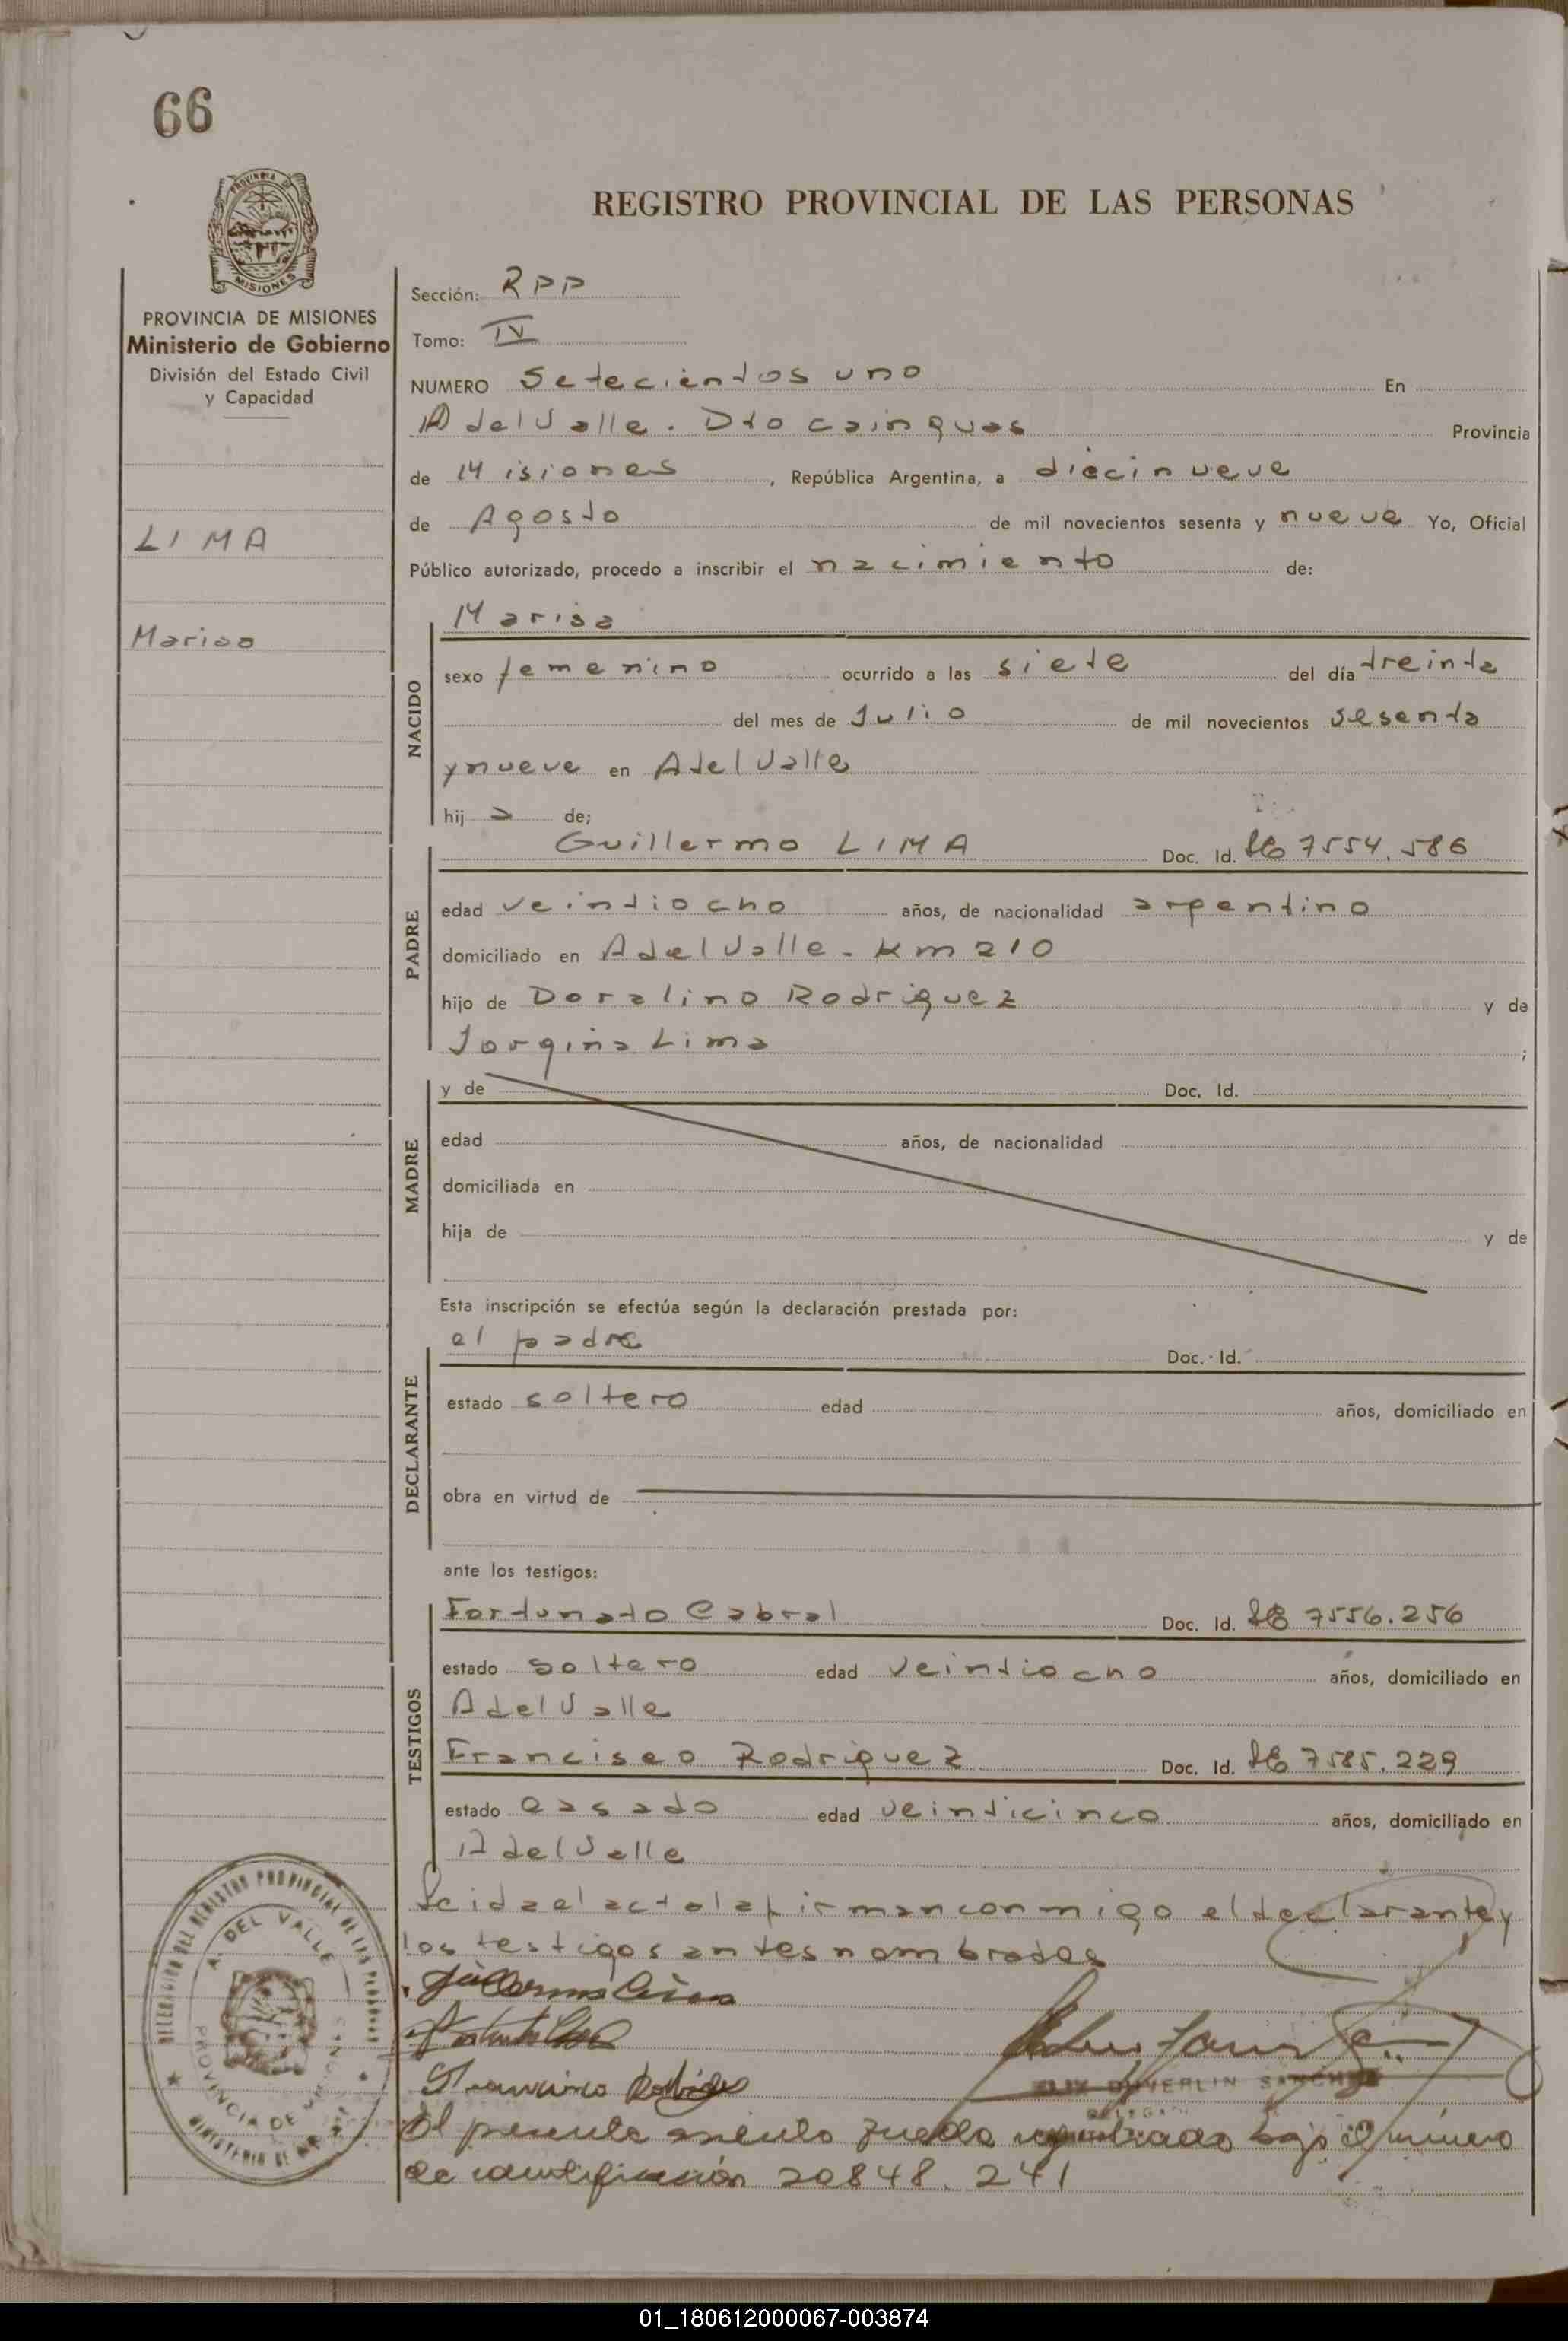 66
PROVINCIA
MISIONES
REGISTRO PROVINCIAL DE LAS PERSONAS
PROVINCIA DE MISIONES
Ministerio de Gobierno
División del Estado Civil
y Capacidad
LIMA
Marisa
Sección: RPP
Tomo: IV
NUMERO Setecientos uno En
A del Valle. Dto cainguas Provincia
de Misiones, República Argentina, a diecinueve
de Agosto de mil novecientos sesenta y nueve Yo, Oficial
Público autorizado, procedo a inscribir el nacimiento de:
NACIDO
Marisa
sexo femenino ocurrido a las siete del día treinta
del mes de Julio de mil novecientos sesenta
y nueve en A del Valle
hij a de;
PADRE
Guillermo LIMA Doc. Id. LE 7554.586
edad veintiocho años, de nacionalidad argentino
domiciliado en A del Valle - Km 210
hijo de Doralino Rodriguez y de
Jorgina Lima ;
MADRE
y de Doc. Id.
edad años, de nacionalidad
domiciliada en
hija de y de
Esta inscripción se efectúa según la declaración prestada por:
DECLARANTE
el padre Doc. Id.
estado soltero edad años, domiciliado en
obra en virtud de
ante los testigos:
TESTIGOS
Fortunato Cabral Doc. Id. LE 7556.256
estado soltero edad veintiocho años, domiciliado en
A del Valle
Francisco Rodriguez Doc. Id. LE 7585.229
estado casado edad veinticinco años, domiciliado en
A del Valle
Leida el acta la firman conmigo el declarante y
los testigos antes nombrados
Guillermo Lima
Francisco Rodriguez
DELEGACION DEL REGISTRO PROVINCIAL DE LAS PERSONAS
A. DEL VALLE
PROVINCIA DE MISIONES
SANCHEZ
El presente asiento queda registrado bajo el número
de identificación 20848.241
01_180612000067-003874